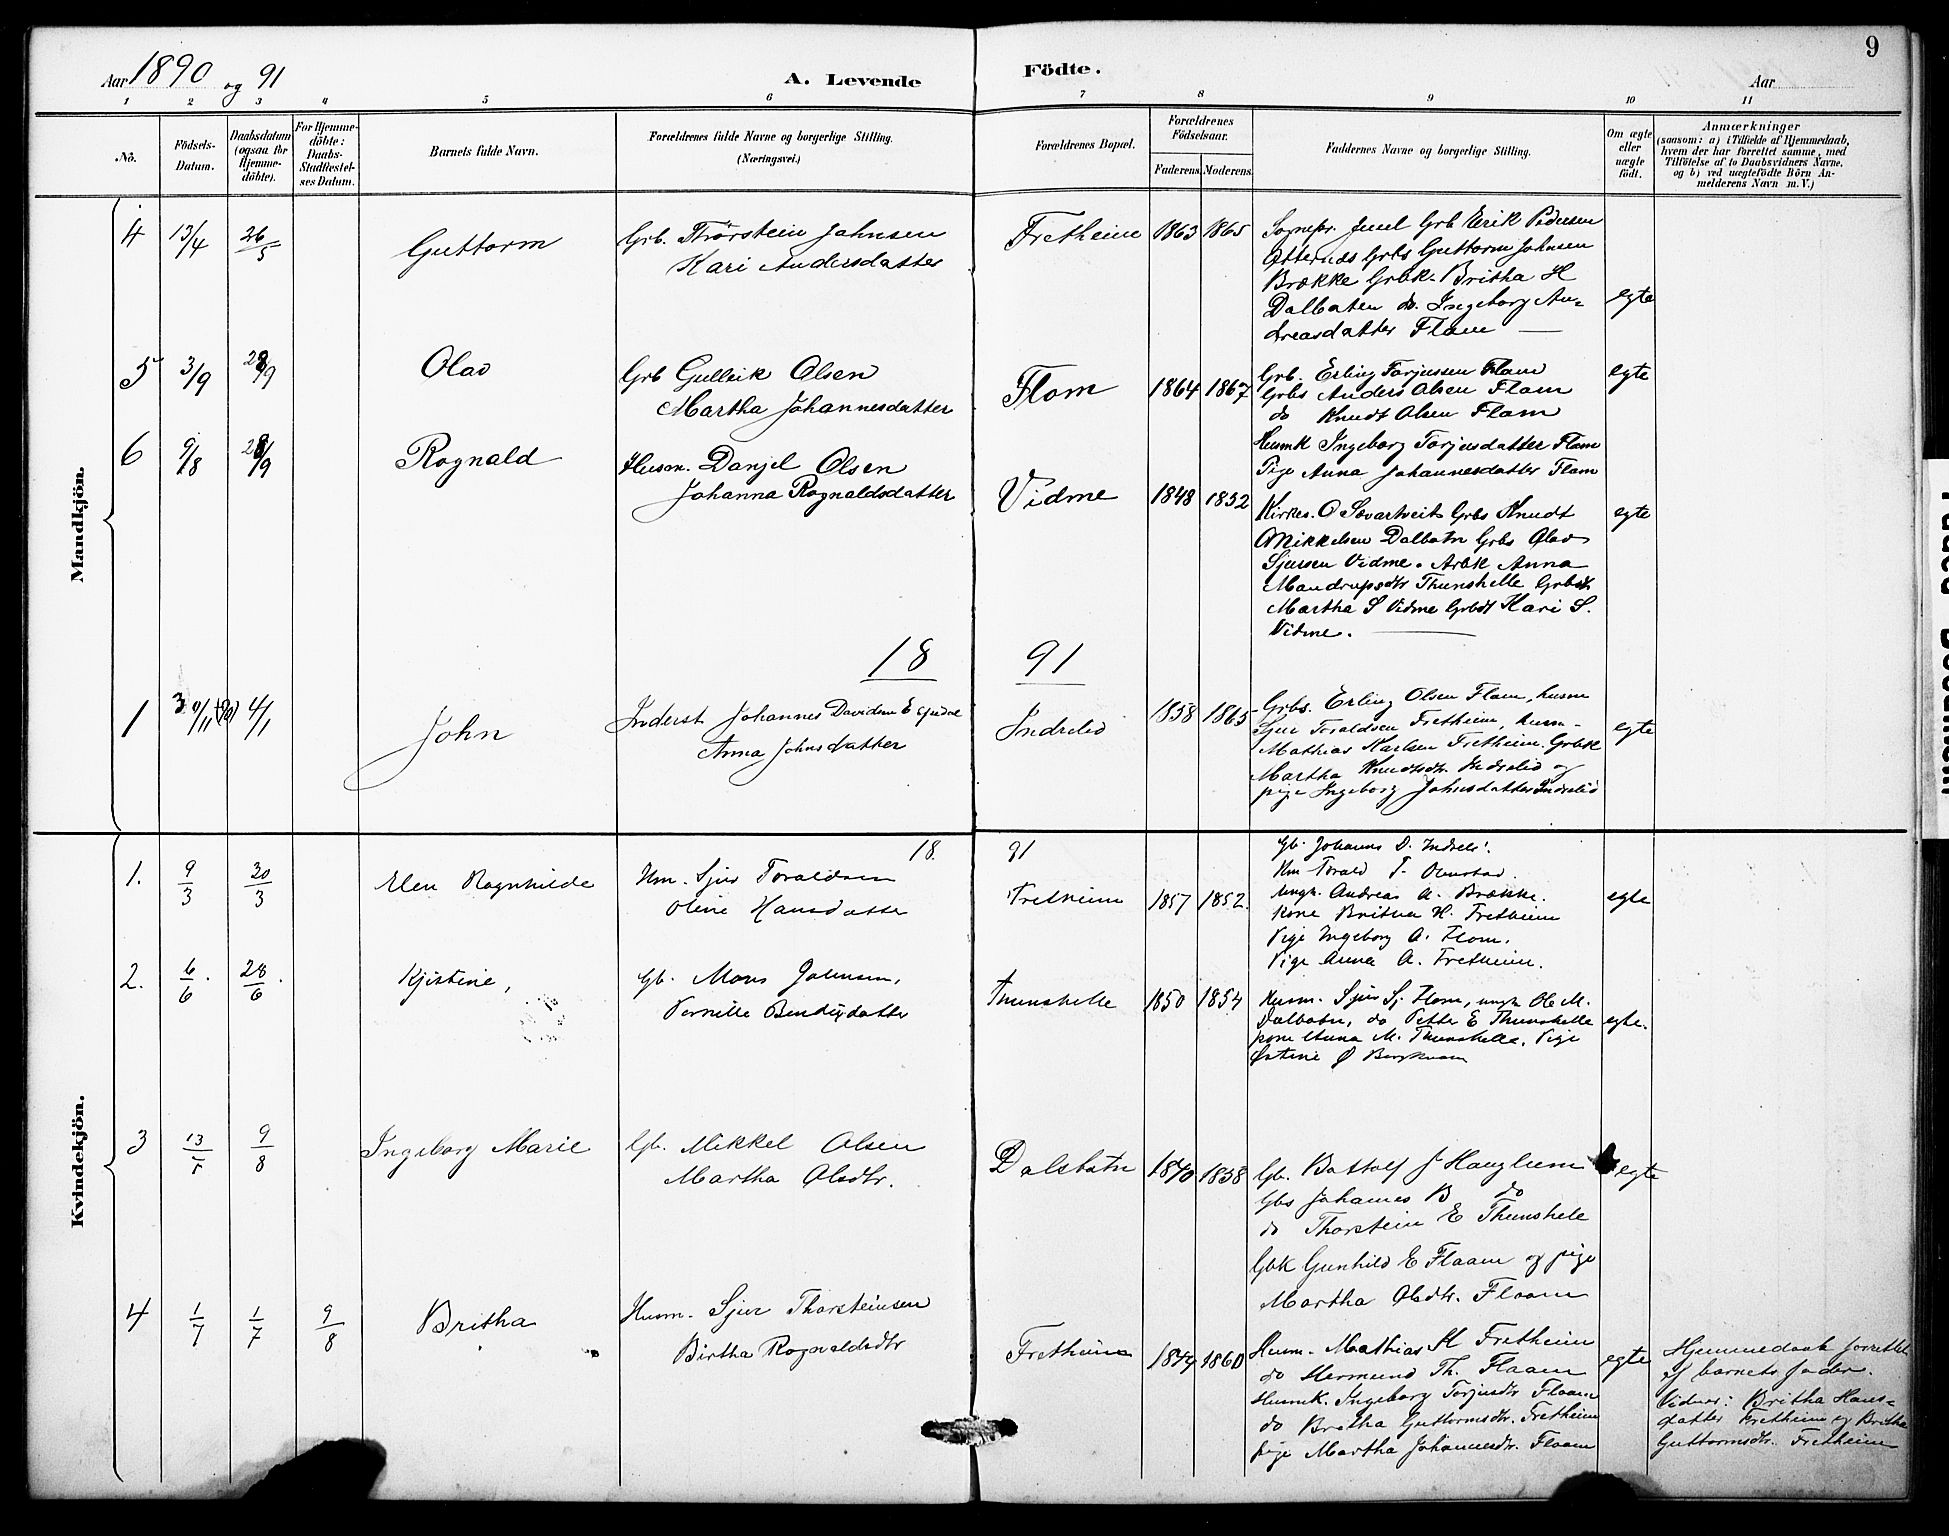 9
Aar 1890 og 91
A. Levende Födte.
Aar
1 2 3 4 5 6 7 8 9 10 11
No.
Födsels-Datum.
Daabsdatum (ogsaa for Hjemme-döbte).
For Hjemme-döbte: Daabs-Stadfæstel-ses Datum.
Barnets fulde Navn.
Forældrenes fulde Navne og borgerlige Stilling. (Næringsvei.)
Forældrenes Bopæl.
Forældrenes Födselsaar.
Faderens Moderens
Faddernes Navne og borgerlige Stilling.
Om ægte eller uægte födt.
Anmærkninger
(saasom: a) i Tilfælde af Hjemmedaab,
hvem der har forrettet samme, med
Tilföielse af to Daabsvidners Navne,
og b) ved uægtefödte Börn An-
melderens Navn m. V.)
Mandkjön.
4 13/4 26/5 Guttorm
Grb. Thorstein Johnsen
Kari Andersdatter
Fretheim 1863 1865
Sognepr. Juul Grb Eirik Pedersen
Otternæs Grbs Guttorm Johnsen
Brække Grbk. Britha H
Dalbaten do. Ingeborg An-
dreasdatter Flam
egte
5 3/9 28/9 Olav
Grb Gullrik Olsen
Martha Johannesdatter
Flom 1864 1867
Grb. Erling Torjussen Flam
Grbs Anders Olsen Flam
do Knudt Olsen Flam
Husmk Ingeborg Torjusdatter Flam
Pige Anna Johannesdatter Flam
egte
6 9/8 28/9 Rognald
Husm. Danjel Olsen
Johanna Rognaldsdatter
Vidme 1848 1852
Kirkes. O Sævartveit Grbs Knudt
Mikkelsen Dalbotn Grbs Olav
Sjursen Vidme. Arbk Anna
Mandrupsdtr Thunshelle Grbdt
Martha S Vidme Grbdt Kari S.
Vidme.
egte
18 91
1 30/11 (90) 4/1 John
Inderst Johannes Davidsen
Anna Johnsdatter
Indrelid 1858 1865
Grbs. Erling Olsen Flam, husm
Sjur Toraldsen Fretheim, husm-
Mathias Karlsen Fretheim. Grbk
Martha Knudtsdtr. Indrelid og
pige Ingeborg Johnsdatter Indrelid
egte
Kvindekjön.
18. 91
1. 9/3 30/3 Elen Ragnhilde
Hm. Sjur Toraldsen
Oline Hansdatter
Fretheim 1857 1852.
Gb. Johannes D. Indrel.
Hm Torald T.
Ungk. Andreas A. Brække.
Kone Britha H. Fretheim
Pige Ingeborg A. Flom.
Pige Anna A. Fretheim.
egte
2. 6/6. 28/6. Kjistine,
Gb. Mons Johnsen,
Pernille Bendixdatter
Thunshelle 1850 1854
Husm. Sjur Sj. Flom, ungk Ole M.
Dalbotn, do Petter E Thunshelle
kone Anna M. Thunshelle. Pige
Østine Ø
egte.
3 13/5 9/8 Ingeborg Marie
Gb. Mikkel Olsen
Martha Olsdtr.
Dalsbotn 1840 1858
Gb. Bottolf J Haughem
Gbs Johannes B do
do Thorstein E Thunshele
Gbk Gunhild E Flaam og pige
Martha Olsdtr. Flaam
egte
4 1/7 1/7 9/8 Britha
Husm. Sjur Thorsteinsen
Birtha Rognaldsdtr
Fretheim 1844 1860
Husm. Mathias K Fretheim
do Hermund Th. Flaam
Husmk. Ingeborg Torjusdtr Flaam
do Britha Guttormsdtr. Fretheim
pige Martha Johannesdtr. Flaam
egte
Hjemmedaab forrettet
af barnets fader.
Vidner: Britha Hans-
datter Fretheim og Britha
Guttormsdtr. Fretheim